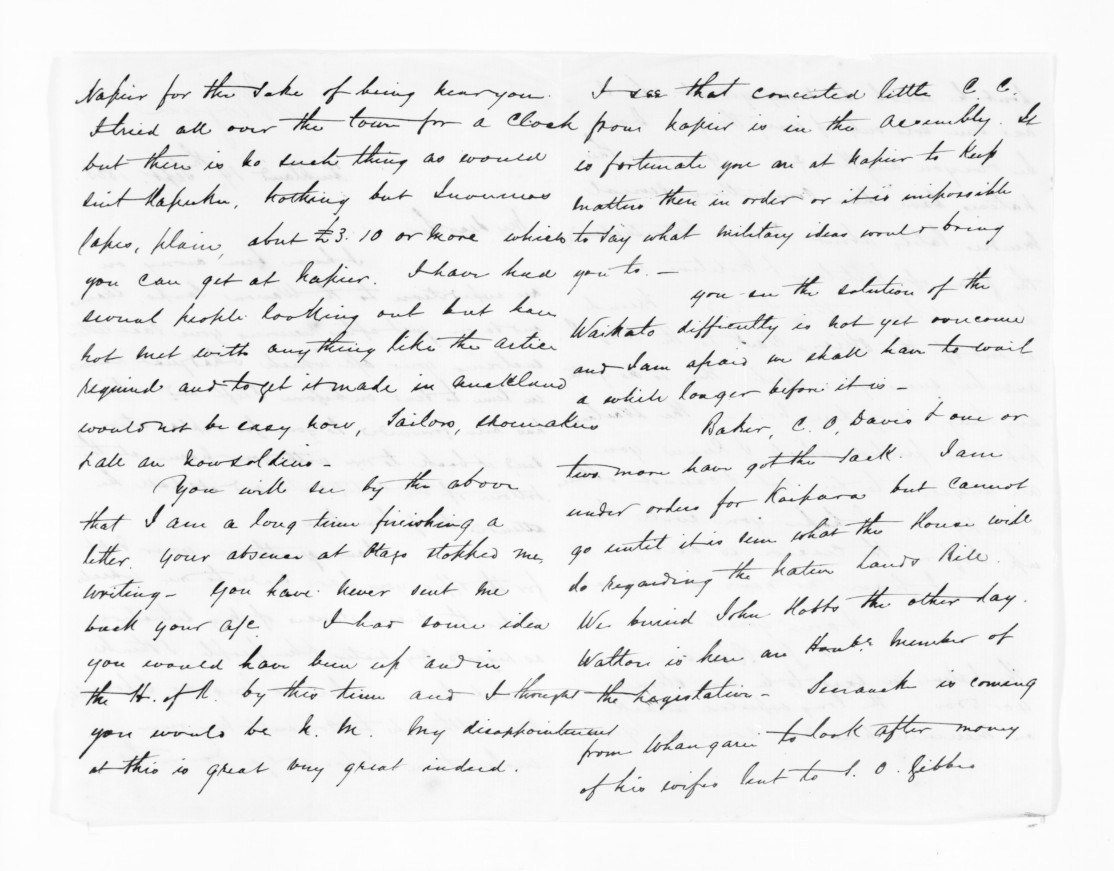 Napier for the sake of being near you.
I tried all over the town for a Cloak
but there is no such thing as would
suit Hapuku, nothing but Inverness
Capes, plain, about £3.10 or more which
you can get at Napier. I have had
several people looking out but have
not met with anything like the article
required and to get it made in Auckland
would not be easy now, Tailors, shoemakers
& all are now soldiers -
You will see by the above
that I am a long time finishing a
letter. Your absence at Otago stopped me
writing - You have never sent me
back your a/c I had some idea
you would have been up and in
the H. of R. by this time and I thought
you would be N. M. My disappointment
at this is great very great indeed.
I see that conceited little C. C.
from Napier is in the Assembly. It
is fortunate you are at Napier to keep
matters there in order or it is impossible
to say what military ideas would bring
you to. -
You see the solution of the
Waikato difficulty is not yet overcome
and I am afraid we shall have to wait
a while longer before it is -
Baker, C. O. Davis & one or
two more have got the sack. I am
under orders for Kaipara but cannot
go until it is seen what the House will
do regarding the Native Lands Bill.
We buried John Hobbs the other day.
Watton is here an Honble Member of
the Legislative - is coming
from Whangarei to look after money
of his wifes lent to S. O. Gibbes